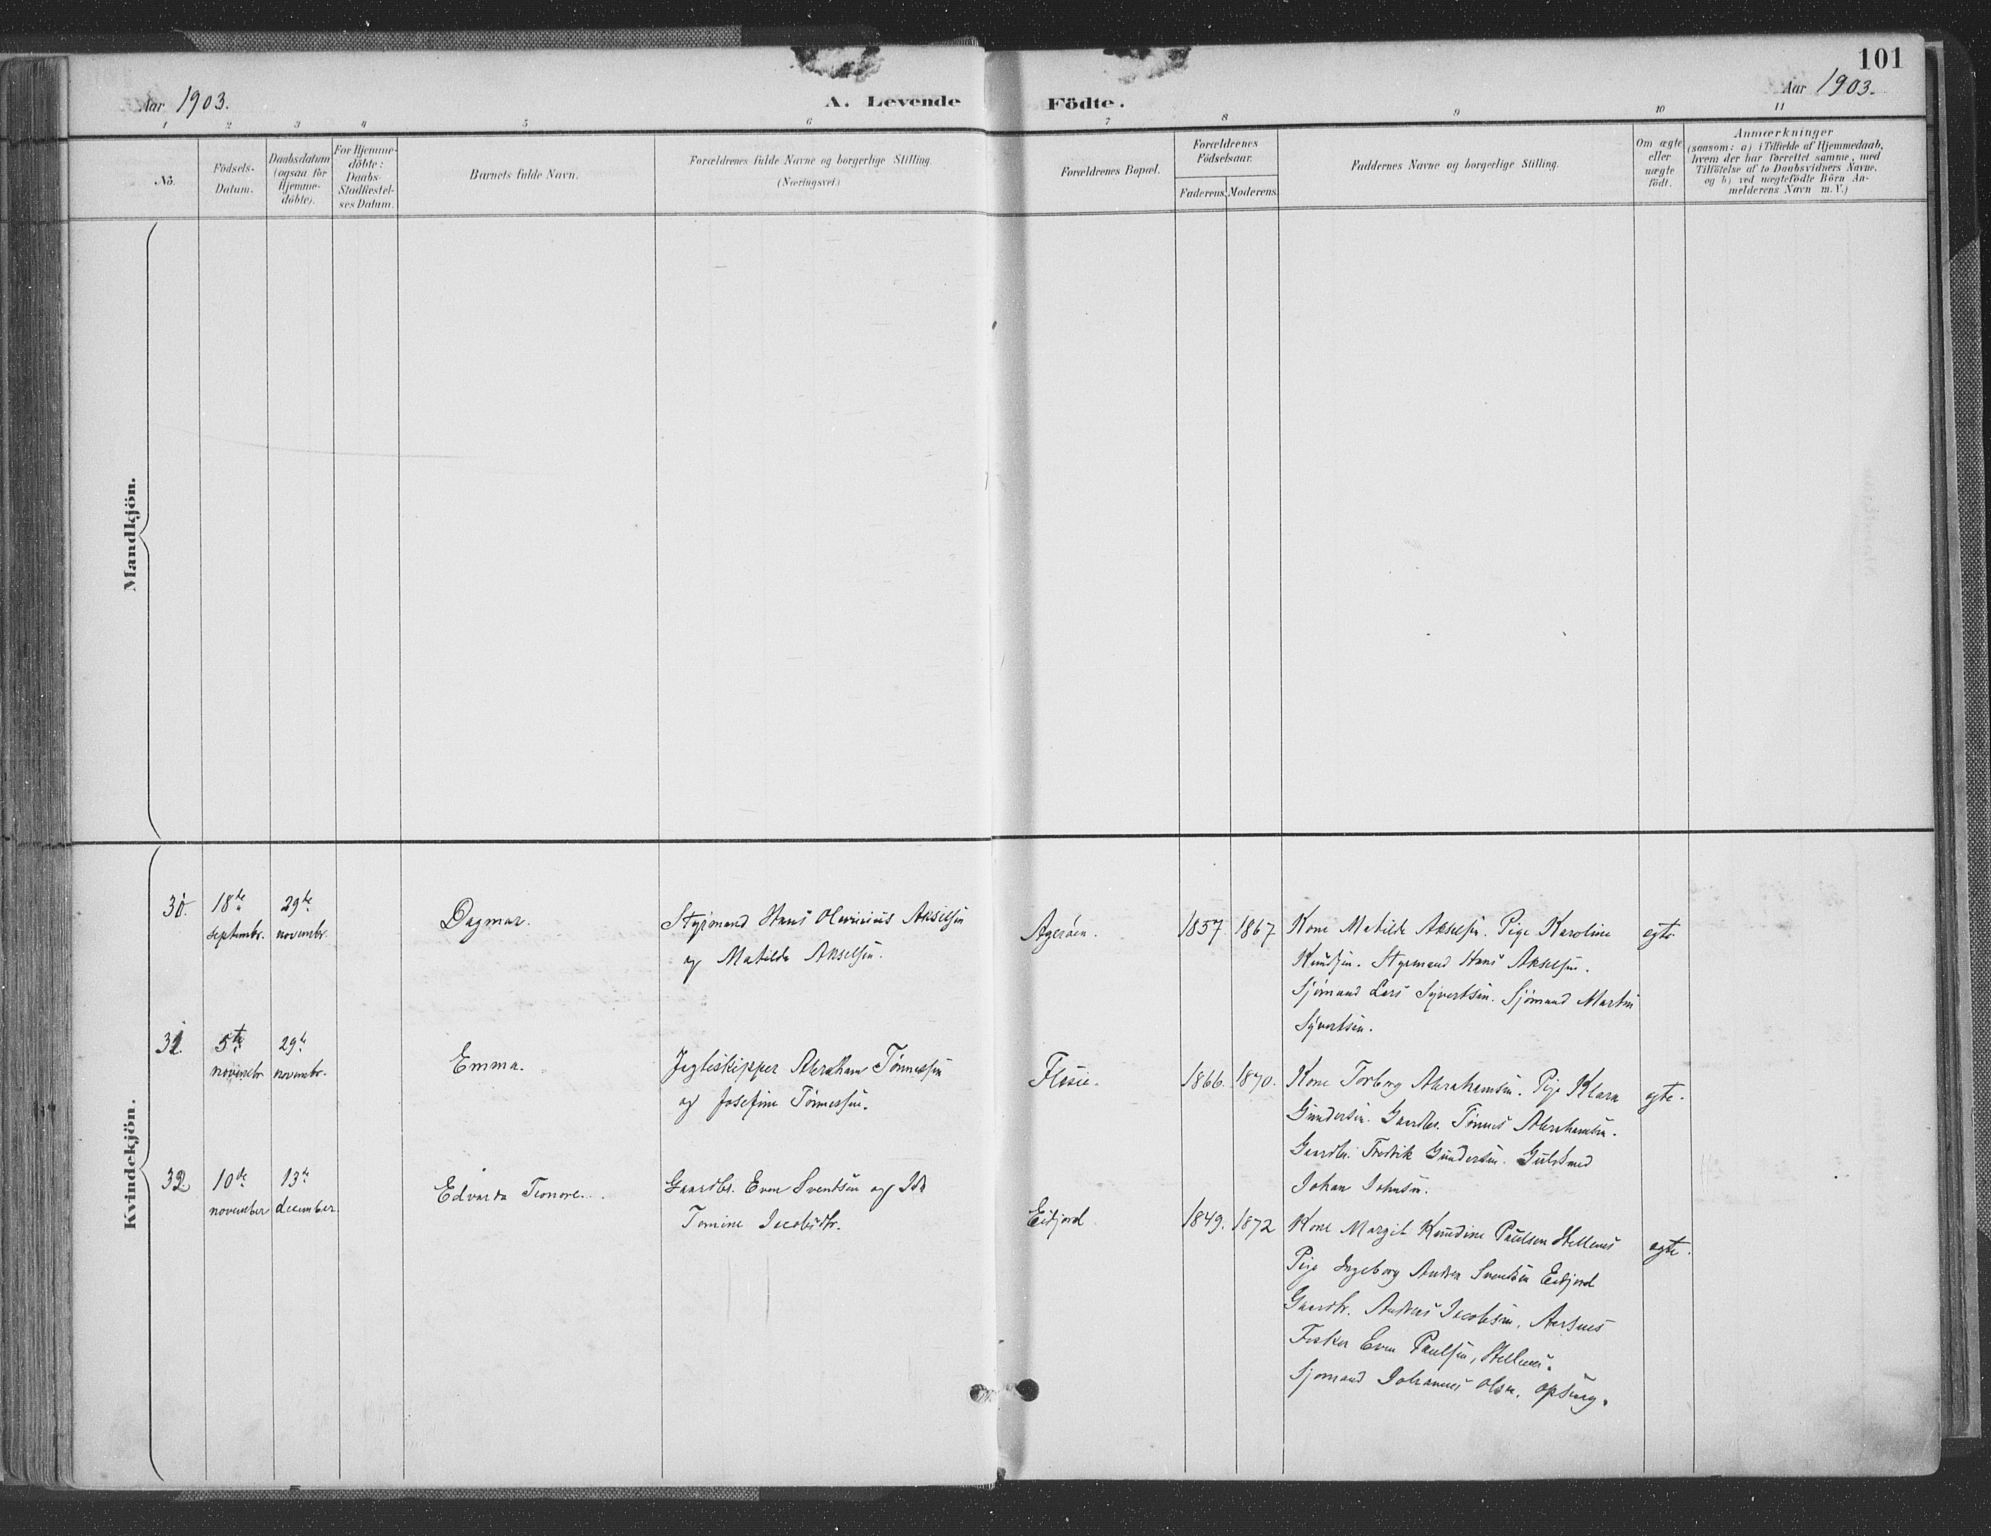 101
Aar 1903.
A. Levende Födte.
Aar 1903.
1 2 3 4 5 6 7 8 9 10 11
No.
Födsels-Datum.
Daabsdatum (ogsaa for Hjemme-döbte).
For Hjemme-döbte: Daabs-Stadfæstel-ses Datum.
Barnets fulde Navn.
Forældrenes fulde Navne og borgerlige Stilling. (Næringsvei.)
Forældrenes Bopæl.
Forældrenes Födselsaar.
Faderens. Moderens.
Faddernes Navne og borgerlige Stilling.
Om ægte eller uægte födt.
Anmærkninger
(saasom: a) i Tilfælde af Hjemmedaab,
hvem der har forrettet samme, med
Tilföielse af to Daabsvidners Navne,
og b) ved uægtefödte Börn An-
melderens Navn m. V.)
Mandkjön.
Kvindekjön.
30. 18de septembr. 29de novembr.
Dagmar.
Styrmand Hans Olavius Akselsen
og Matilde Akselsen.
Agerøen. 1857 1867
Kone Matilde Akselsen. Pige Karoline
Knudsen. Styrmand Hans Akselsen.
Sjømand Lars Syvertsen. Sjømand Martin
Syvertsen.
egte
31. 5te novembr. 29de novembr.
Emma.
Jagteskipper Abraham Tønnessen
og Josefine Tønnessen.
1866. 1870.
Kone Torborg Abrahamsen. Pige Klara
Gundersen. Gaardbr. Tønnes Abrahamsen.
Gaardbr. Fredrik Gundersen. Gulsmed
Johan Johnsen.
egte.
32. 10de november 13de december
Edvarda Teonore.
Gaardbr. Even Sventsen og Ida
Tomine Jacobsdtr.
Eidjord 1849. 1872
Kone Margit Knudine Paulsen Stellenes
Pige Ingeborg Andrea Sventsen Eidjord
Gaardbr. Andreas Jacobsen,
Fisker Even Paulsen, Stellenes.
Sjømand Johannes Olsen,
egte.